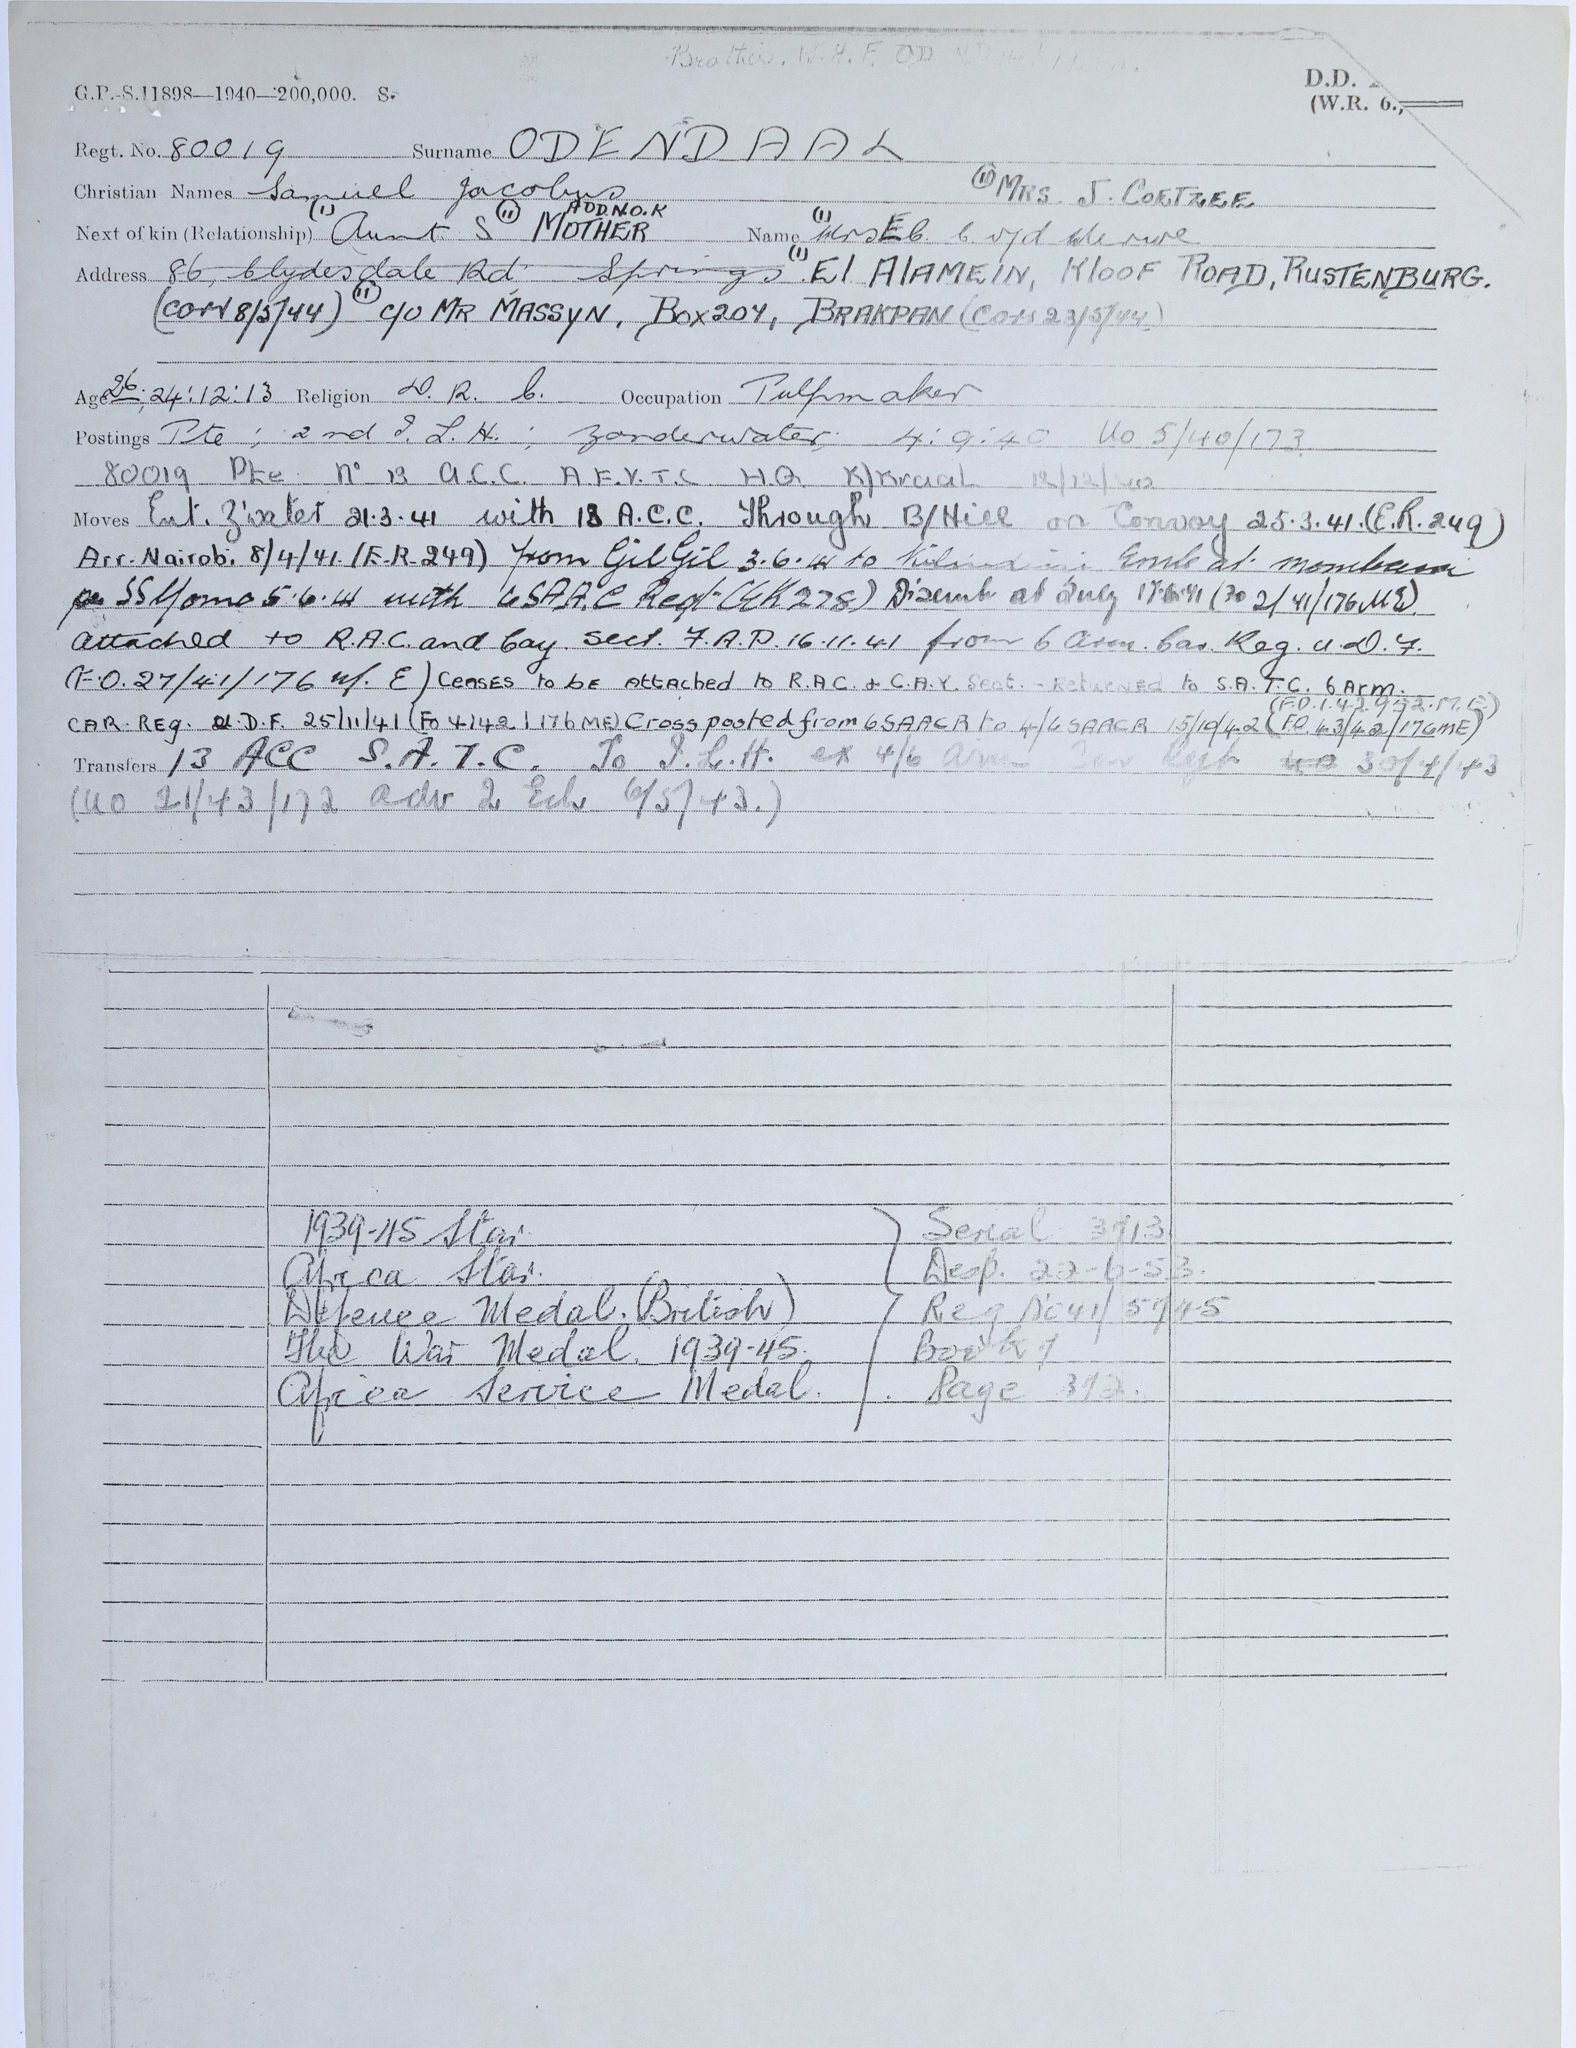 Brother. W.H.F. OD
G.P.-S.11898—1940—200,000. S.
D.D.
(W.R. 6.)
Regt. No. 80019 Surname ODENDAAL
Christian Names Samuel Jacobus (11) MRS. J. COETZEE
ADD.N.O.K
Next of kin (Relationship) (1) Aunt S (11) MOTHER Name (1) Mrs E C v/d Merwe
Address 86, Clydesdale Rd, Springs (1) El ALAMEIN, KLOOF ROAD, RUSTENBURG.
(corr 8/5/44) (11) c/o MR MASSYN, Box 204, BRAKPAN (Corr 23/5/44)
Age 26: 24:12:13 Religion D. R. C. Occupation Pulpmaker
Postings Pte; 2nd I. L. H.; Zonderwater, 4:9:40 UO 5/40/173
80019 Pte No 13 A.C.C. A.F.V.T.C H.Q. K/Kraal 12/12/
Moves Ent. Z'water 21.3.41 with 13 A.C.C. Through B/Hill on Convoy 25.3.41.(E.R.249)
Arr. Nairobi. 8/4/41. (E.R.249) from Gil Gil 3.6.41 to Kilindini Emb at Mombasa
per SS Yoma 5.6.41 with 6 SAAC Regt (GK 278) Disemb at 17.6.41 (FO 2/41/176 ME)
attached to R.A.C. and Cay. Sect. F.A.D. 16.11.41 from 6 Arm. Car. Reg. U.D.F.
(F.O. 27/41/176 M.E) CEASES to bE ATTACHED to R.A.C. & C.A.Y. Sect. - RETURNED to S.A.T.C. 6 ARM.
(F.O.1.42.9
CAR. REG. U.D.F. 25/11/41 (FO 4142/176 ME) Cross posted from 6 SAACR to 4/6 SAACR 15/10/42 (FO.43/42/176ME)
Transfers 13 ACC S.A.T.C. To I.L.H. ex 4/6 Arm Car Regt 30/4/43
(UO 21/43/172 adv 2 Ech 6/5/43.)
1939-45 Star. Serial 3713
Africa Star. Desp. 22-6-53.
Defence Medal. (British) Reg No 41/5745
The War Medal. 1939-45. Book 7
Africa Service Medal. Page 372.